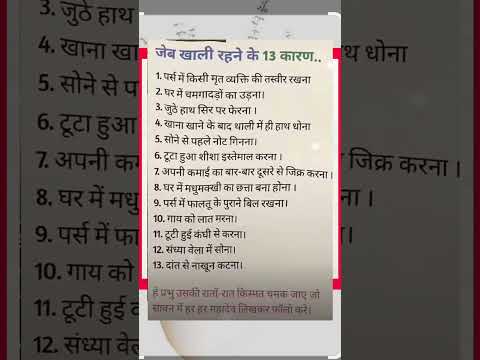 3. जुठे हाथ
4. खाना खान
5. सोने से प
6. टूटा हुआ
7. अपनी कमा
8. घर में मधु
9. पर्स में फा
10. गाय को
11. टूटी हुई व
12. संध्या वेल
जेब खाली रहने के 13 कारण..
1. पर्स में किसी मृत व्यक्ति की तस्वीर रखना
2. घर में चमगादड़ों का उड़ना।
3. जुठे हाथ सिर पर फेरना ।
4. खाना खाने के बाद थाली में ही हाथ धोना
5. सोने से पहले नोट गिनना।
6. टूटा हुआ शीशा इस्तेमाल करना ।
7. अपनी कमाई का बार-बार दूसरे से जिक्र करना ।
8. घर में मधुमक्खी का छत्ता बना होना ।
9. पर्स में फालतू के पुराने बिल रखना।
10. गाय को लात मरना।
11. टूटी हुई कंघी से करना।
12. संध्या वेला में सोना।
13. दांत से नाखून कटना।
हे प्रभु उसकी रातों-रात किस्मत चमक जाए जो
सावन में हर हर महादेव लिखकर फॉलो करे।
हाथ धोना
क्र करना ।